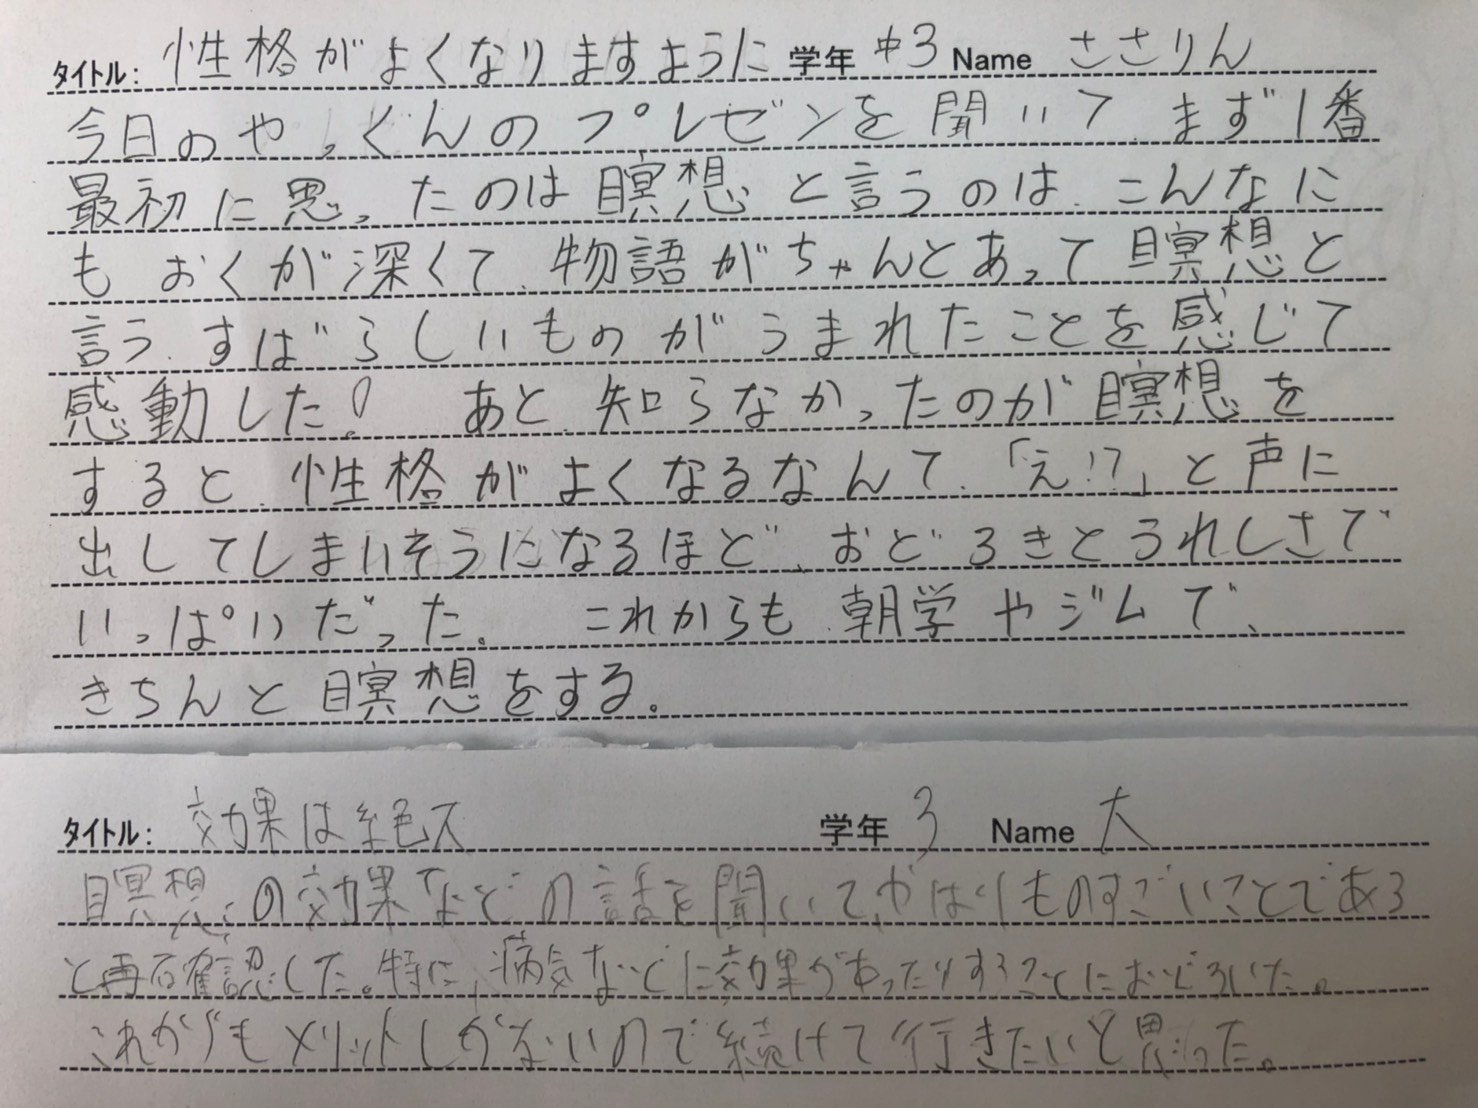 タイトル: 性格がよくなりますように 学年 中3 Name ささりん
今日のやっくんのプレゼンを聞いて、まず1番
最初に思ったのは瞑想と言うのは、こんなに
もおくが深くて、物語がちゃんとあって瞑想と
言う、すばらしいものがうまれたことを感じて
感動した! あと、知らなかったのが瞑想を
すると、性格がよくなるなんて、「え!?」と声に
出してしまいそうになるほど、おどろきとうれしさで
いっぱいだった。 これからも、朝学やジムで、
きちんと瞑想をする。
タイトル: 効果は絶大 学年 3 Name 大
瞑想の効果などの話を聞いて、やはりものすごいことである
と再確認した。特に、病気などに効果があったりすることにおどろいた。
これからもメリットしかないので続けて行きたいと思った。